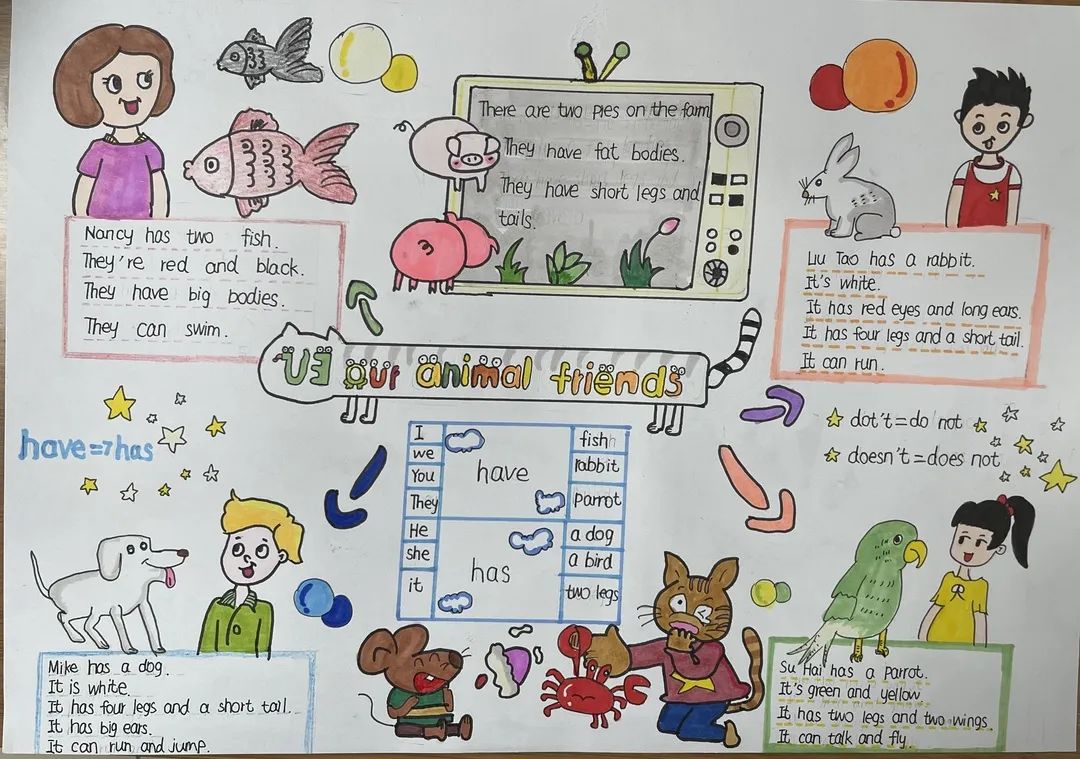 There are two pies on the farm
They have fat bodies.
They have short legs and
tails.
Nancy has two fish.
They're red and black.
They have big bodies.
They can swim.
Liu Tao has a rabbit.
It's white.
It has red eyes and long ears.
It has four legs and a short tail.
It can run.
U3 our animal friends
have=7has
dot't=do not
doesn't=does not
I
we
You
They
have
fishh
rabbit
parrot
He
she
it
has
a dog
a bird
two legs
Mike has a dog.
It is white.
It has four legs and a short tail.
It has big ears.
It can run and jump.
Su Hai has a parrot.
It's green and yellow.
It has two legs and two wings.
It can talk and fly.